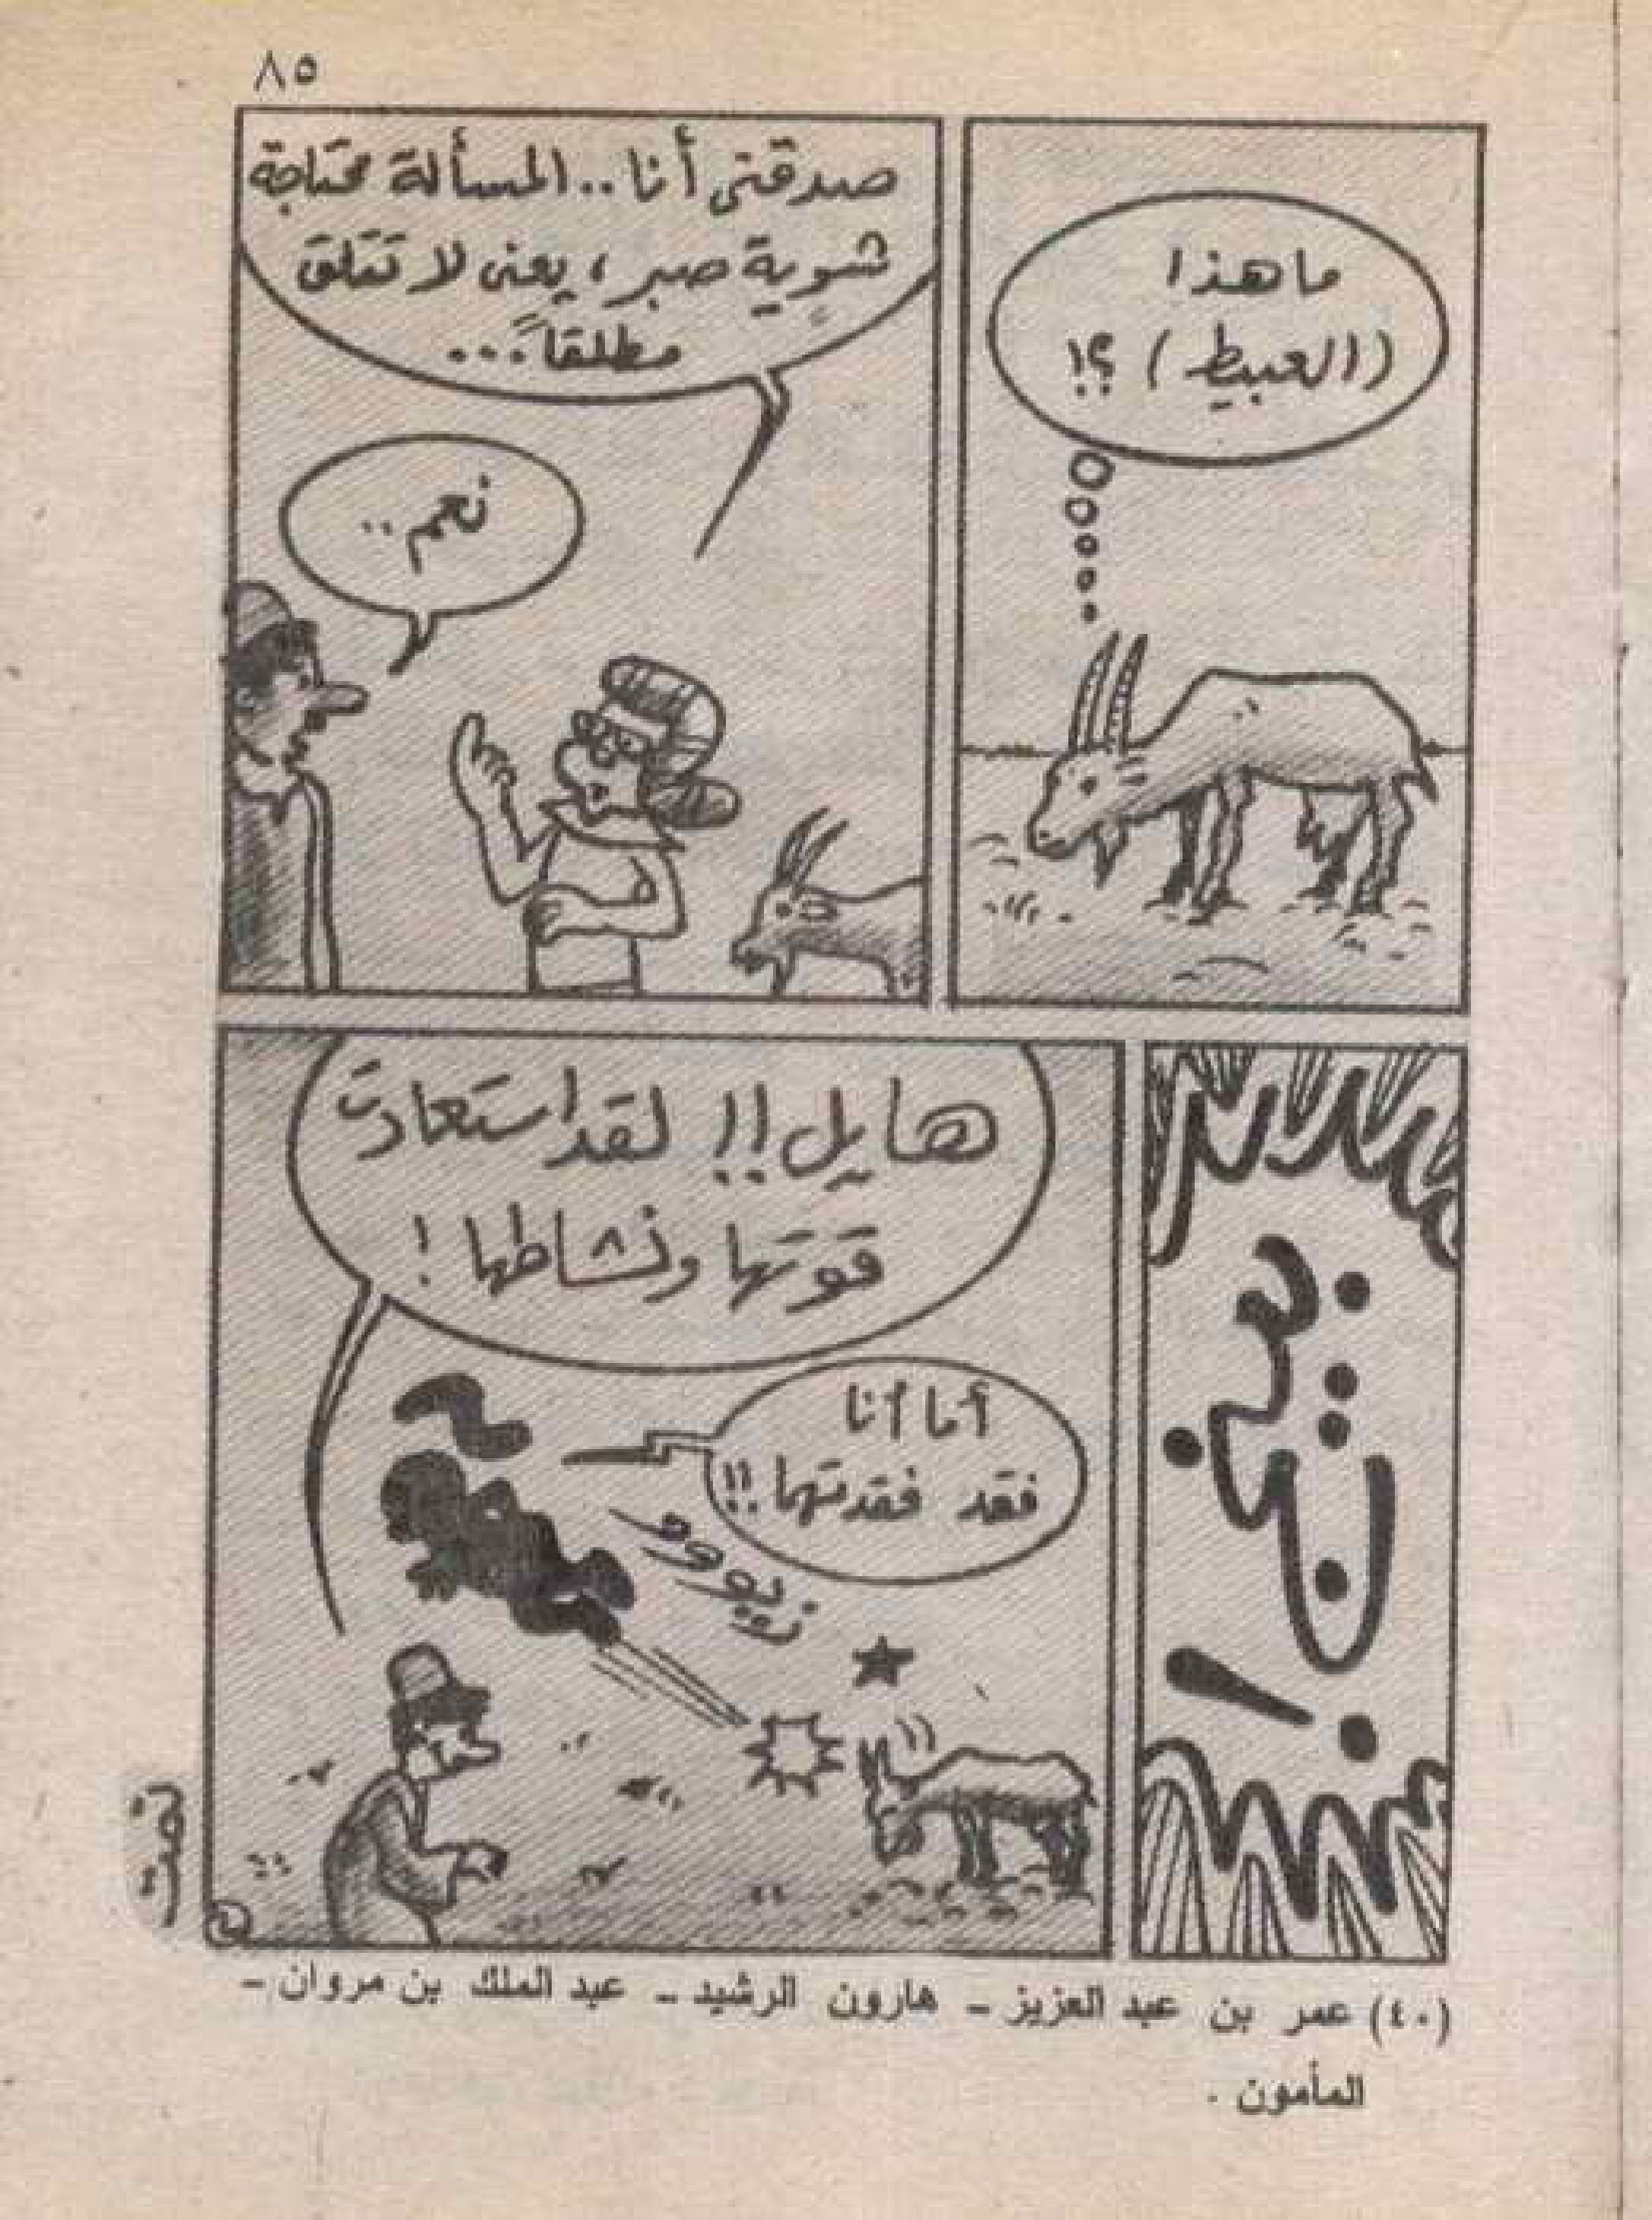 ٨٥
ما هذا
(العبيط) ؟!
صدقتى أنا.. المسألة محتاجة
شوية صبر، يعنى لا تقلق
مطلقاً...
نعم..
هايل!! لقد استعادت
قوتها ونشاطها!
أما أنا
فقد فقدتهما!!
زييووو
تمت
(٤٠) عمر بن عبد العزيز – هارون الرشيد – عبد الملك بن مروان –
المأمون .